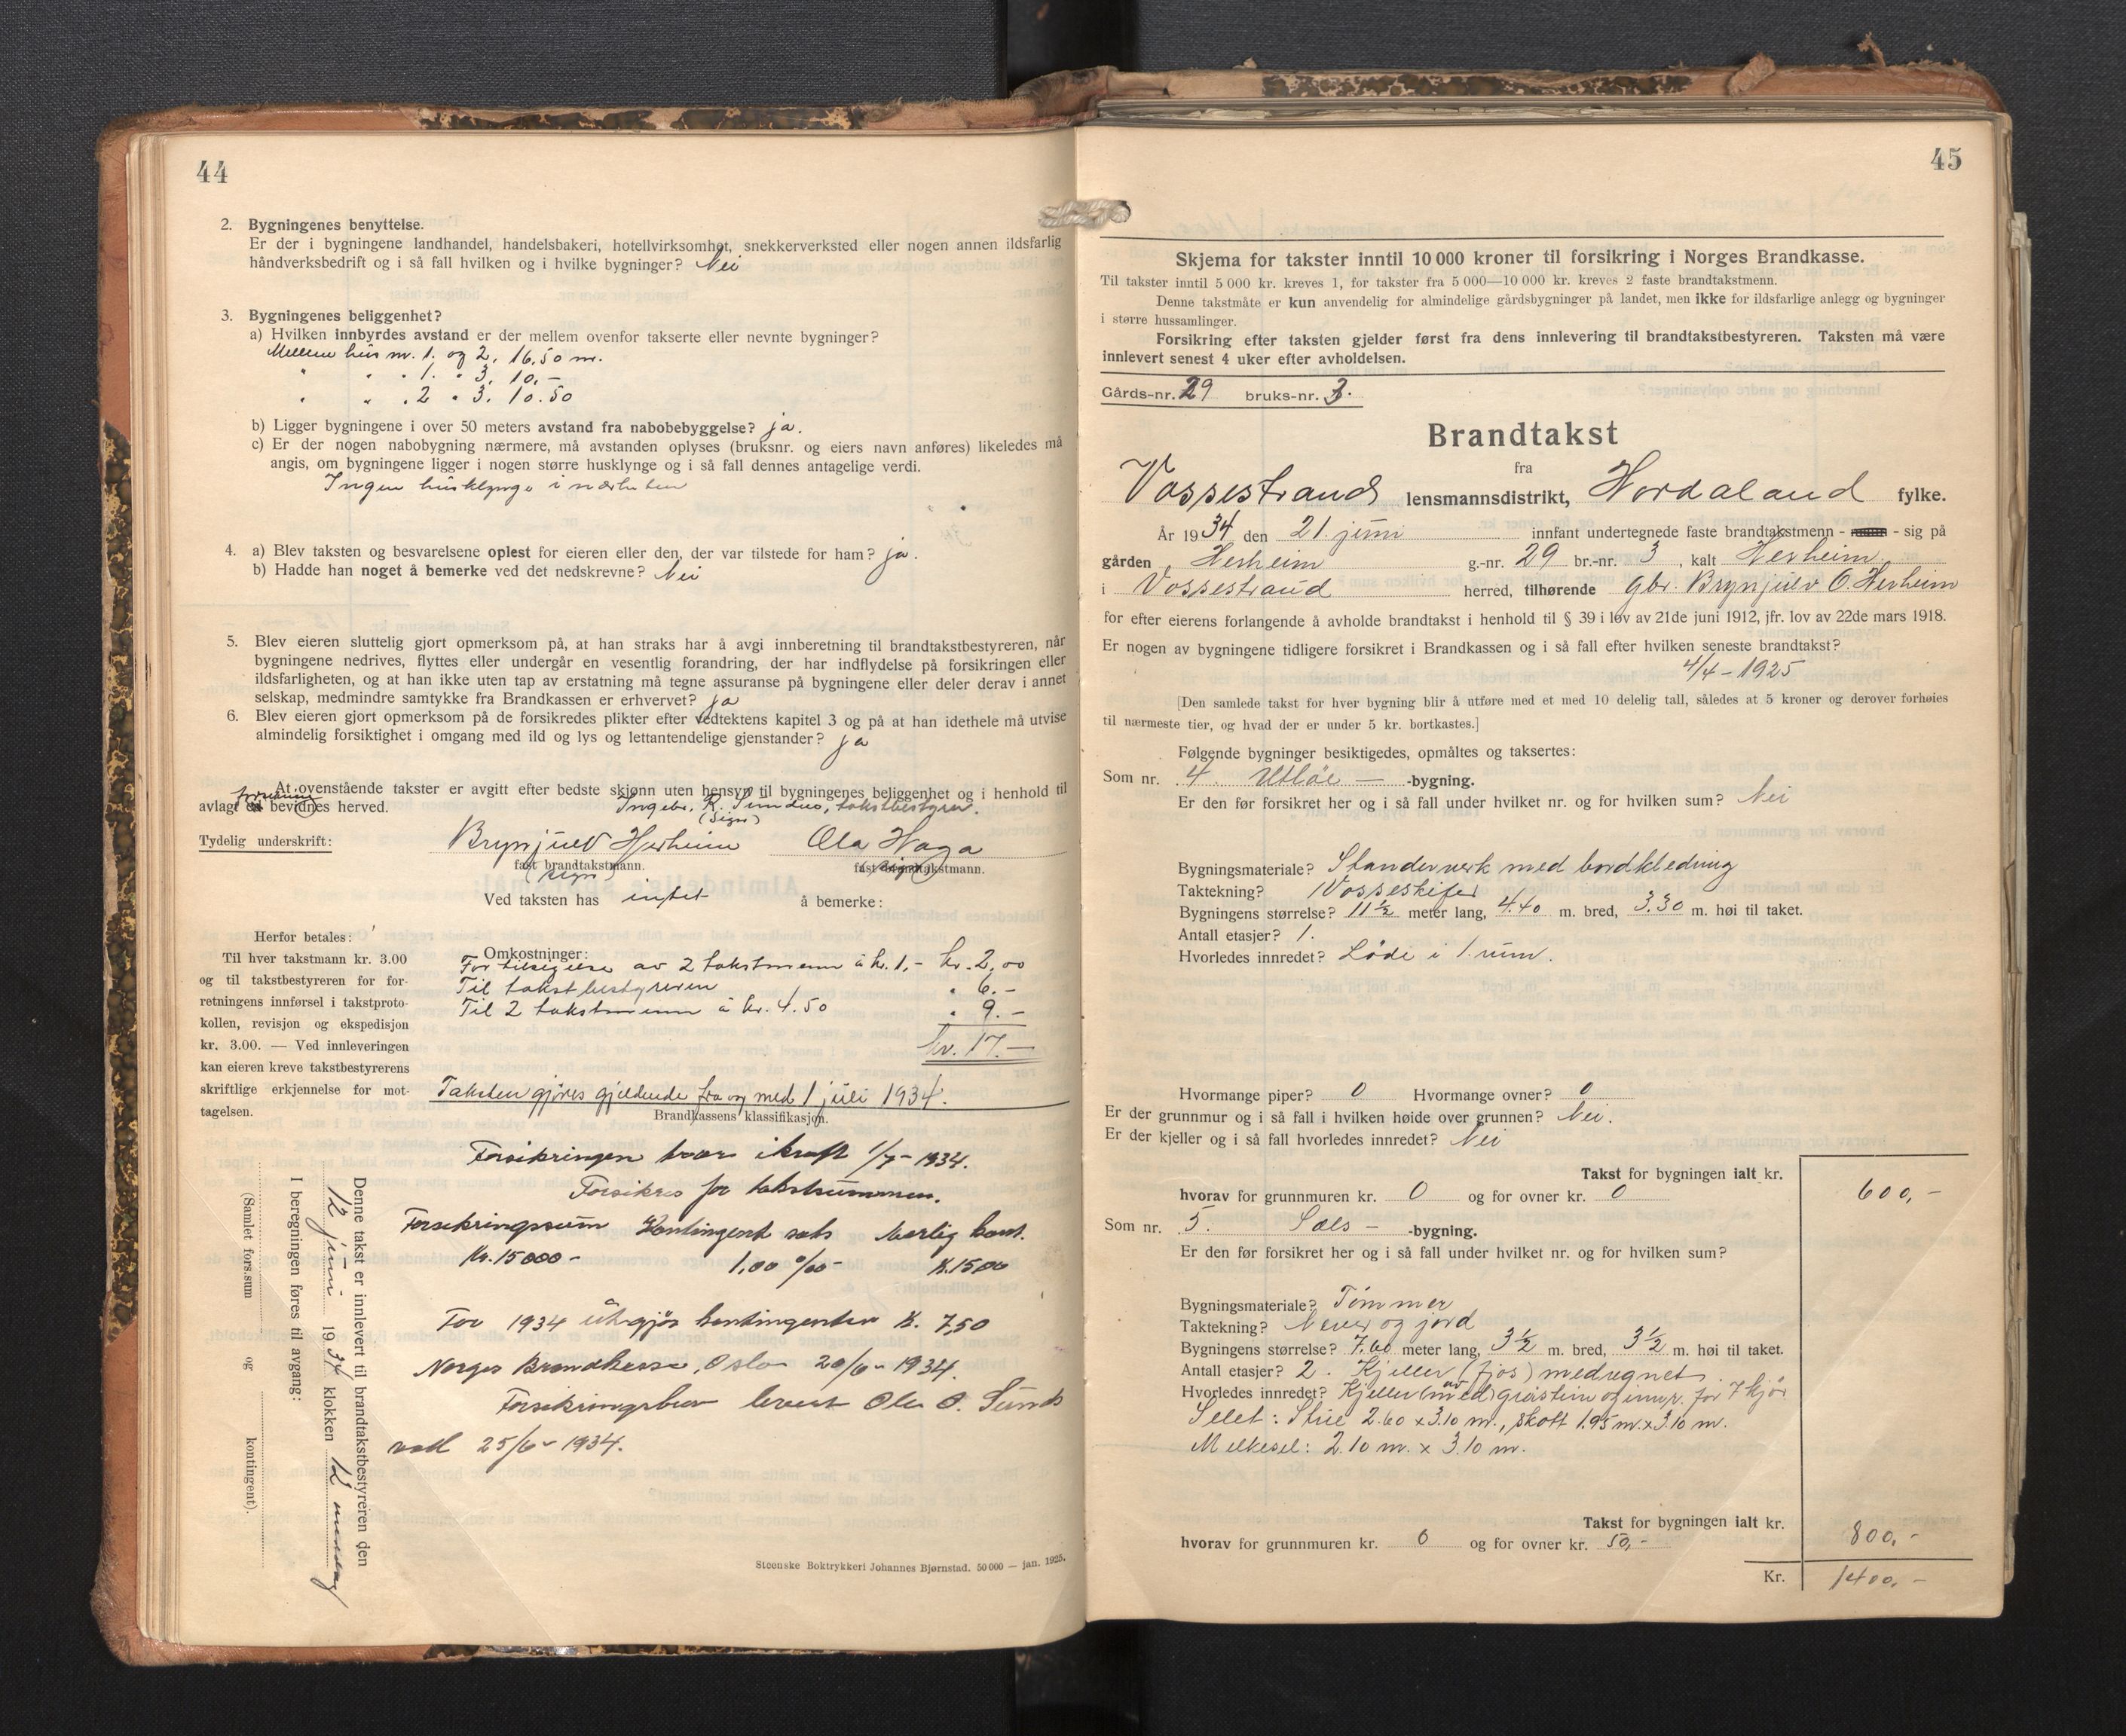 44
2. Bygningenes benyttelse.
Er der i bygningene landhandel, handelsbakeri, hotellvirksomhet, snekkerverksted eller nogen annen ildsfarlig
håndverksbedrift og i så fall hvilken og i hvilke bygninger? Nei
3. Bygningenes beliggenhet?
a) Hvilken innbyrdes avstand er der mellem ovenfor takserte eller nevnte bygninger?
Mellem hus nr. 1. og 2, 16,50 m.
" " . 1. " 3, 10,-
" " . 2 " 3. 10.50
b) Ligger bygningene i over 50 meters avstand fra nabobebyggelse? ja.
c) Er der nogen nabobygning nærmere, må avstanden oplyses (bruksnr. og eiers navn anføres) likeledes må
angis, om bygningene ligger i nogen større husklynge og i så fall dennes antagelige verdi.
Ingen husklynge i nærheten
4. a) Blev taksten og besvarelsene oplest for eieren eller den, der var tilstede for ham? ja.
b) Hadde han noget å bemerke ved det nedskrevne? Nei
5. Blev eieren sluttelig gjort opmerksom på, at han straks har å avgi innberetning til brandtakstbestyreren, når
bygningene nedrives, flyttes eller undergår en vesentlig forandring, der har indflydelse på forsikringen eller
ildsfarligheten, og at han ikke uten tap av erstatning må tegne assuranse på bygningene eller deler derav i annet
selskap, medmindre samtykke fra Brandkassen er erhvervet? ja
6. Blev eieren gjort opmerksom på de forsikredes plikter efter vedtektens kapitel 3 og på at han idethele må utvise
almindelig forsiktighet i omgang med ild og lys og lettantendelige gjenstander? ja
At ovenstående takster er avgitt efter bedste skjønn uten hensyn til bygningenes beliggenhet og i henhold til
avlagt ed bevidnes herved. Ingebr. K. takstbestyrer.
(sign)
Tydelig underskrift: Brynjulv Herheim Ola Haga
fast brandtakstmann. fast brandtakstmann.
(sign) (sign)
Ved taksten has intet å bemerke:
Herfor betales:
Til hver takstmann kr. 3.00
og til takstbestyreren for for-
retningens innførsel i takstproto-
kollen, revisjon og ekspedisjon
kr. 3.00. — Ved innleveringen
kan eieren kreve takstbestyrerens
skriftlige erkjennelse for mot-
tagelsen.
Omkostninger:
For tilsigelse av 2 takstmenn à kr. 1,- kr. 2,00
Til takstbestyreren " 6.-
Til 2 takstmenn à kr. 4.50 " 9.-
kr. 17.-
Taksten gjøres gjeldende fra og med 1 juli 1934.
Brandkassens klassifikasjon.
Forsikringen trær ikraft 1/7-1934.
Forsikres for takstsummen.
Forsikringssum Kontingent sats Aarlig kont.
Kr. 15000- 1,00 ‰ K. 15,00
For 1934 utgjør kontingenten K. 7,50
Norges Brandkasse, Oslo 20/6-1934.
Forsikringsbrev levert Ola O. Sunds
25/6-1934.
Denne takst er innlevert til brandtakstbestyreren den
12 juni 1934 klokken 12 middag
I beregningen føres til avgang:
(Samlet fors.sum og kontingent).
Steenske Boktrykkeri Johannes Bjørnstad. 50 000 — jan. 1925.
45
Skjema for takster inntil 10 000 kroner til forsikring i Norges Brandkasse.
Til takster inntil 5 000 kr. kreves 1, for takster fra 5 000—10 000 kr. kreves 2 faste brandtakstmenn.
Denne takstmåte er kun anvendelig for almindelige gårdsbygninger på landet, men ikke for ildsfarlige anlegg og bygninger
i større hussamlinger.
Forsikring efter taksten gjelder først fra dens innlevering til brandtakstbestyreren. Taksten må være
innlevert senest 4 uker efter avholdelsen.
Gårds-nr. 29 bruks-nr. 3.
Brandtakst
fra
Vossestrand lensmannsdistrikt, Hordaland fylke.
År 1934 den 21. juni innfant undertegnede faste brandtakstmenn - - sig på
gården Herheim g.-nr. 29 br.-nr. 3, kalt Herheim
i Vossestrand herred, tilhørende gbr. Brynjulv O. Herheim
for efter eierens forlangende å avholde brandtakst i henhold til § 39 i lov av 21de juni 1912, jfr. lov av 22de mars 1918.
Er nogen av bygningene tidligere forsikret i Brandkassen og i så fall efter hvilken seneste brandtakst?
4/4-1925
[Den samlede takst for hver bygning blir å utføre med et med 10 delelig tall, således at 5 kroner og derover forhøies
til nærmeste tier, og hvad der er under 5 kr. bortkastes.]
Følgende bygninger besiktigedes, opmåltes og taksertes:
Som nr. 4 Utløe — -bygning.
Er den før forsikret her og i så fall under hvilket nr. og for hvilken sum? Nei
Bygningsmateriale? Standerverk med bordkledning
Taktekning? Vosseskifer
Bygningens størrelse? 11 ½ meter lang, 4.40 m. bred, 3.30 m. høi til taket.
Antall etasjer? 1.
Hvorledes innredet? Løde i 1 rum.
Hvormange piper? 0 Hvormange ovner? 0
Er der grunnmur og i så fall i hvilken høide over grunnen? Nei.
Er der kjeller og i så fall hvorledes innredet? Nei
Takst for bygningen ialt kr. 600,-
hvorav for grunnmuren kr. 0 og for ovner kr. 0
Som nr. 5. Sæls- -bygning.
Er den før forsikret her og i så fall under hvilket nr. og for hvilken sum?
Bygningsmateriale? Tømmer
Taktekning? Never og jord
Bygningens størrelse? 7.60 meter lang, 3 ½ m. bred, 3 ½ m. høi til taket.
Antall etasjer? 2. Kjeller (fjos) medregnet.
Hvorledes innredet? Kjeller av gråstein og innr. for 7 kjør
Selet: Stue 2.60 x 3.10 m., skott 1.95 m. x 3.10 m.
Melkesel: 2.10 m. x 3.10 m.
Takst for bygningen ialt kr. 800,-
hvorav for grunnmuren kr. 0 og for ovner kr. 50,-
Kr. 1400,-